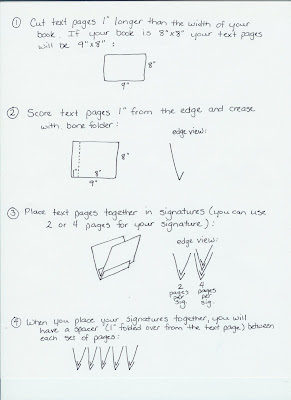 ① Cut text pages 1" longer than the width of your
book. If your book is 8"x8" your text pages
will be 9"x8":
8"
9"
② Score text pages 1" from the edge and crease
with bone folder:
edge view:
8"
1" 8"
9"
③ Place text pages together in signatures (you can use
2 or 4 pages for your signature):
edge view:
2 4
pages pages
per per
sig. sig.
④ When you place your signatures together, you will
have a spacer (1" folded over from the text page) between
each set of pages: